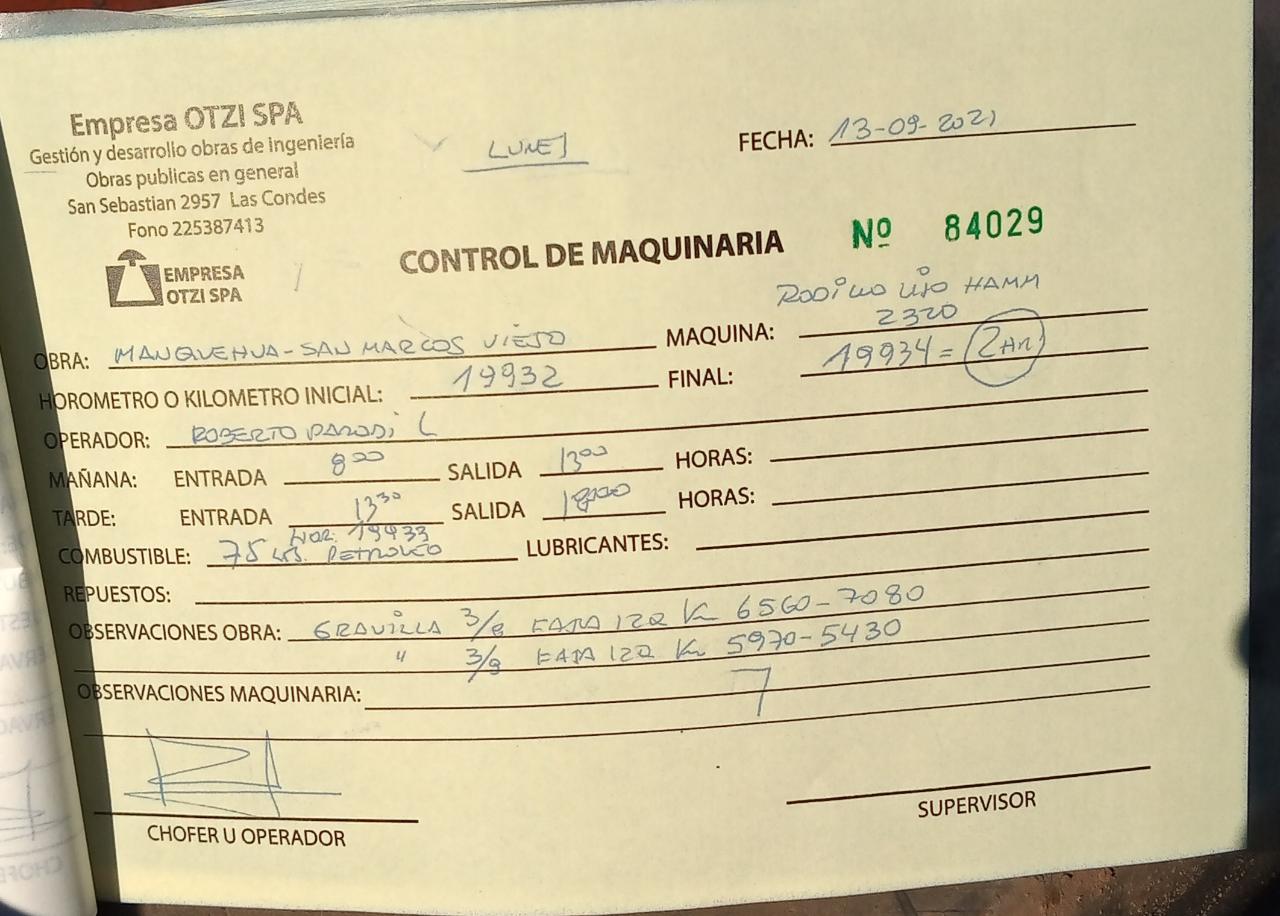 Empresa OTZI SPA
Gestión y desarrollo obras de ingeniería
Obras publicas en general
San Sebastian 2957 Las Condes
Fono 225387413
EMPRESA
OTZI SPA
LUNES
FECHA: 13-09-2021
CONTROL DE MAQUINARIA
Nº 84029
OBRA: MANQUEHUA-SAN MARCOS VIEJO
MAQUINA: RODILLO LISO HAMM
2320
HOROMETRO O KILOMETRO INICIAL: 19932
FINAL: 19934 = 2 Hrs
OPERADOR: ROBERTO PARODI L
MAÑANA: ENTRADA 8 00 SALIDA 13 00 HORAS:
TARDE: ENTRADA 13 30 SALIDA 18 00 HORAS:
HOR. 19933
COMBUSTIBLE: 75 LTS. PETROLEO LUBRICANTES:
REPUESTOS:
OBSERVACIONES OBRA: GRAVILLA 3/8 FAJA IZQ Km 6560-7080
" 3/8 FAJA IZQ Km 5970-5430
OBSERVACIONES MAQUINARIA:
CHOFER U OPERADOR
SUPERVISOR